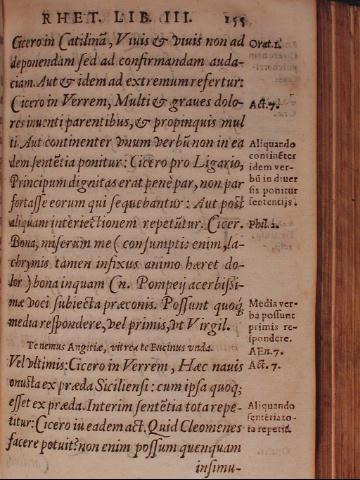 RHET. LIB. III. 155
Cicero in Catilinã, Viuis & viuis non ad
deponendam sed ad confirmandam auda-
ciam. Aut & idem ad extremum refertur:
Cicero in Verrem, Multi & graues dolo-
res inuenti parentibus, & propinquis mul
ti. Aut continenter vnum verbũ non in ea
dem sentẽtia ponitur: Cicero pro Ligario,
Principum dignitas erat penè par, non par
fortasse eorum qui sequebantur: Aut post
aliquam interiectionem repetũtur. Cicer.
Bona, miserum me (consumptis enim, la-
chrymis tamen infixus animo hæret do-
lor) bona inquam Cn. Pompeij acerbissi-
mæ voci subiecta præconis. Possunt quoq;
media respondere, vel primis, vt Virgil.
Te nemus Angitiæ, vitrea te Fucinus vnda.
Vel vltimis: Cicero in Verrem, Hæc nauis
onusta ex præda Siciliensi: cum ipsa quoq;
esset ex præda. Interim sentẽtia tota repe-
titur: Cicero in eadem act. Quid Cleomenes
facere potuit? non enim possum quenquam
insimu-
Orat. 1.
Act. 7.
Aliquando
continẽter
idem ver-
bũ in diuer
sis ponitur
sententijs.
Phil. 2.
Media ver-
ba possunt
primis re-
spondere.
AEn. 7.
Act. 7.
Aliquando
sentẽtia to-
ta repetit̃.